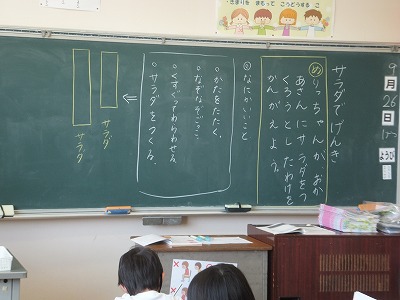 きまりを まもって こうどうする こ
9月26日 げつようび
サラダでげんき
め りっちゃんが、おか
あさんにサラダをつ
くろうとしたわけを
かんがえよう。
◎なにかいいこと
○かたをたたく。
○なぞなぞごっこ
○くすぐってわらわせる。
○サラダをつくる。
サラダ
サラダ